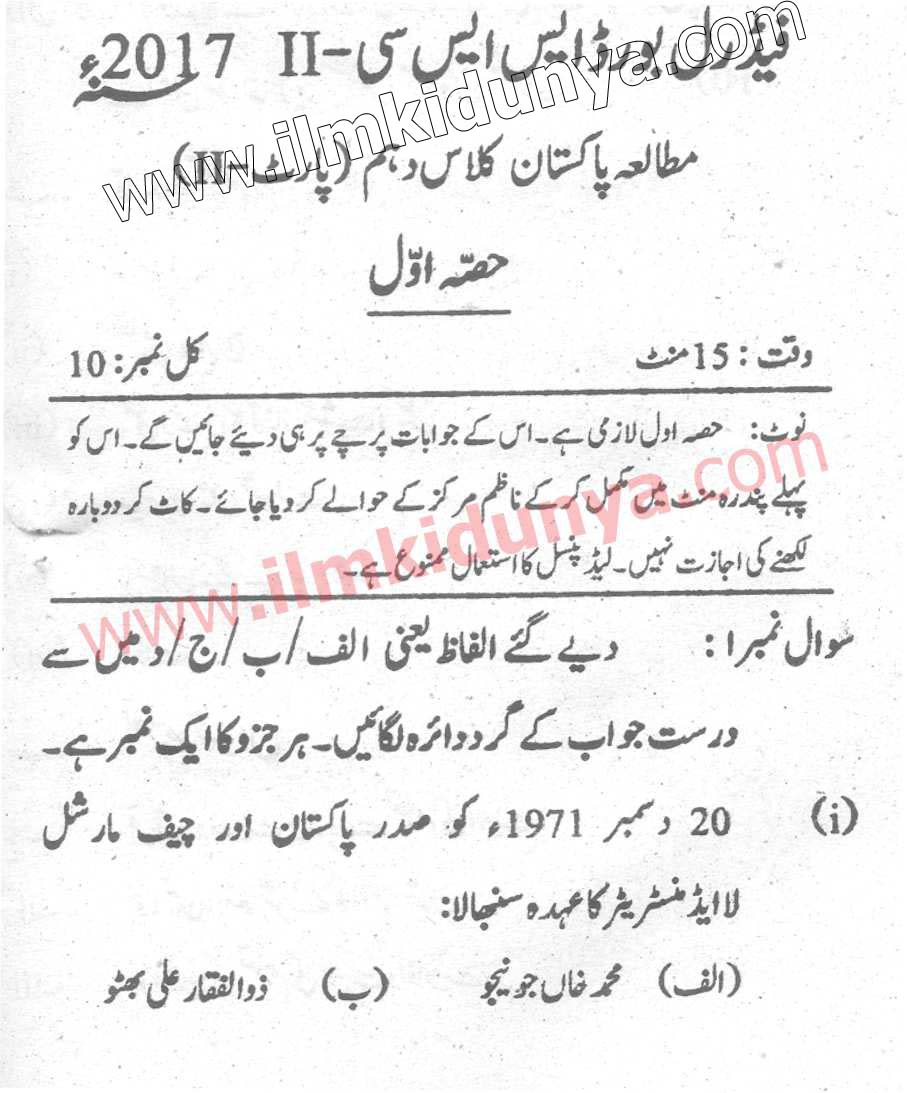 فیڈرل بورڈ ایس ایس سی -II 2017ء
مطالعہ پاکستان کلاس دہم (پارٹ-II)
www.ilmkidunya.com
حصّہ اوّل
وقت: 15 منٹ کل نمبر: 10
نوٹ: حصہ اول لازمی ہے۔ اس کے جوابات پرچے پر ہی دیئے جائیں گے۔ اس کو
پہلے پندرہ منٹ میں مکمل کر کے ناظم مرکز کے حوالے کر دیا جائے۔ کاٹ کر دوبارہ
لکھنے کی اجازت نہیں۔ لیڈ پنسل کا استعمال ممنوع ہے۔
www.ilmkidunya.com
سوال نمبر ۱: دیے گئے الفاظ یعنی الف/ب/ج/د میں سے
درست جواب کے گرد دائرہ لگائیں۔ ہر جزو کا ایک نمبر ہے۔
(i) 20 دسمبر 1971ء کو صدر پاکستان اور چیف مارشل
لا ایڈمنسٹریٹر کا عہدہ سنبھالا:
(الف) محمد خاں جونیجو (ب) ذوالفقار علی بھٹو